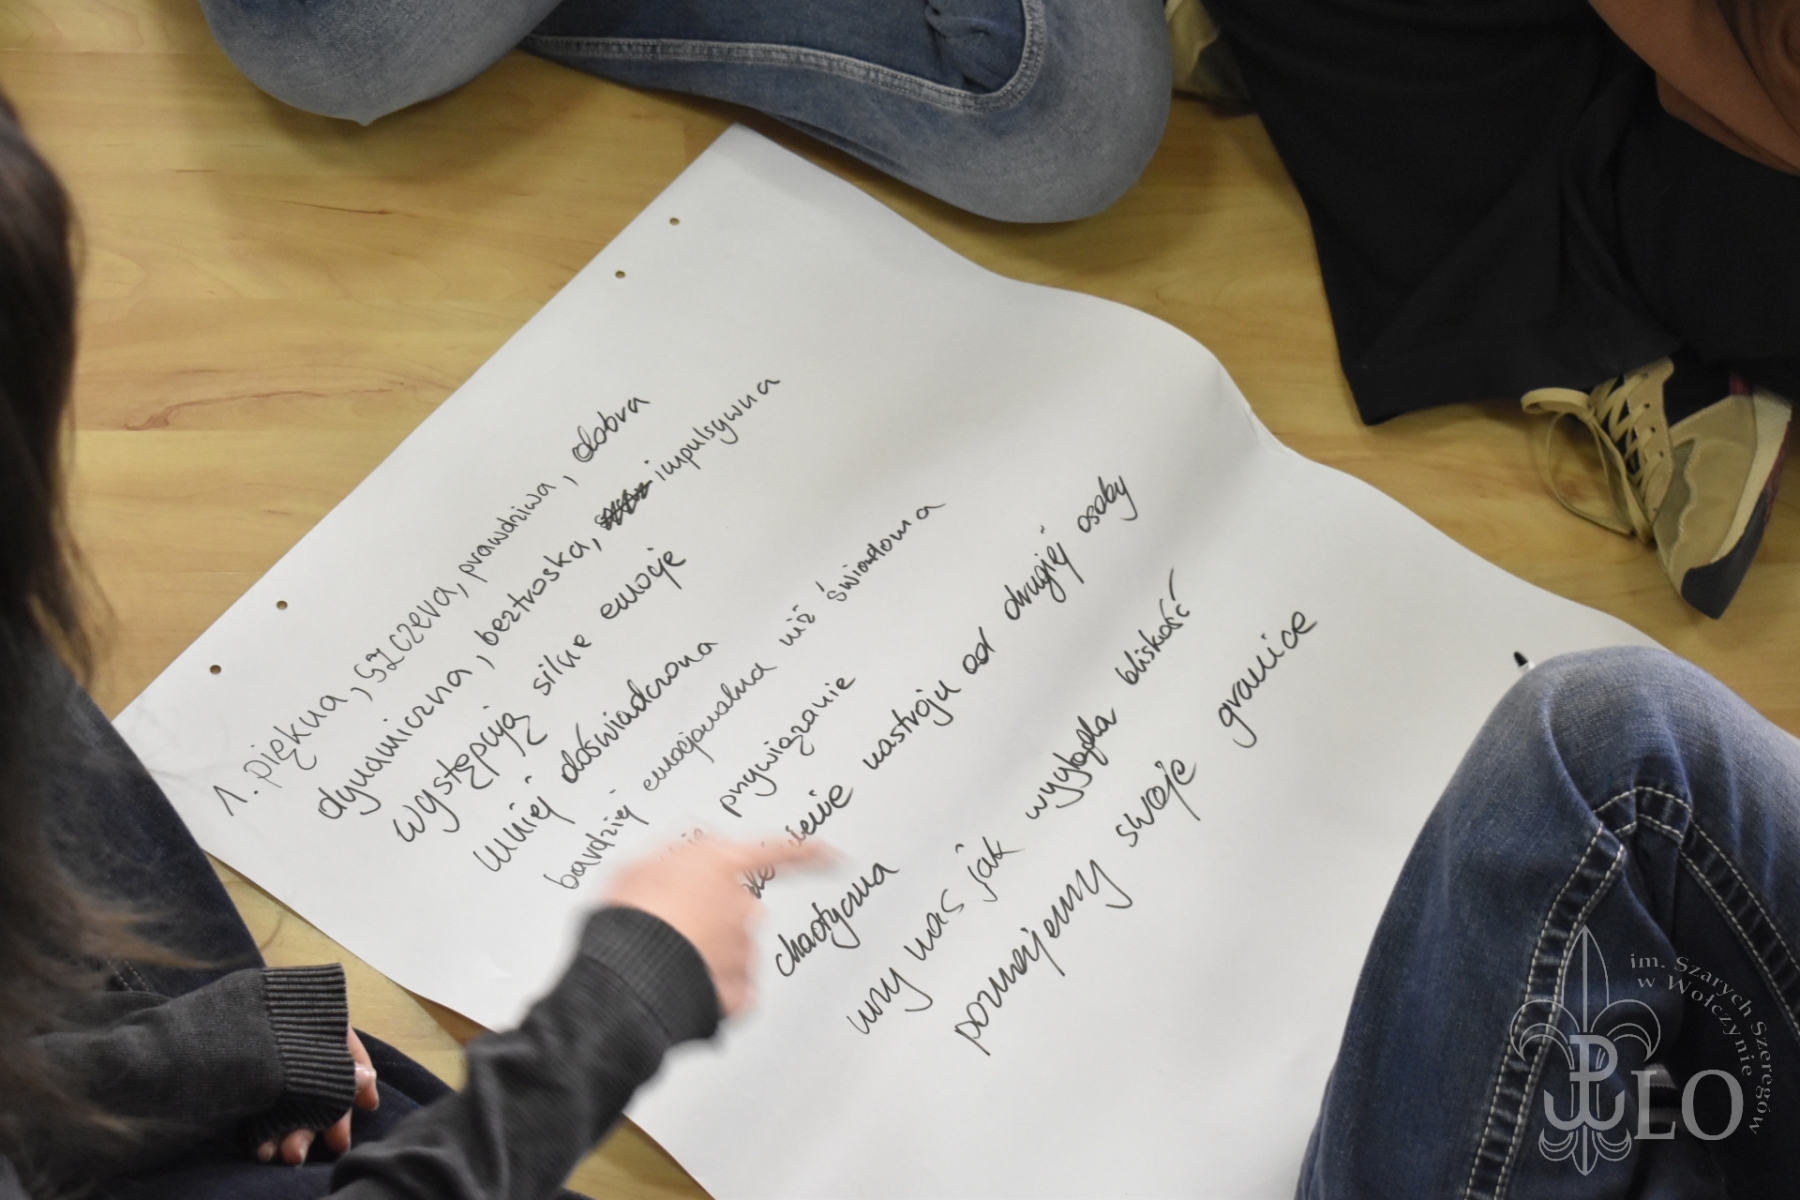 1. piękna, szczera, prawdziwa, dobra
dynamiczna, beztroska, impulsywna
występują silne emocje
mniej doświadczona
bardziej emocjonalna niż świadoma
przywiązanie
nastroju od drugiej osoby
chaotyczna
uczy nas jak wygląda bliskość
poznajemy swoje granice
im. Szarych Szeregów
w Wołczynie
LO